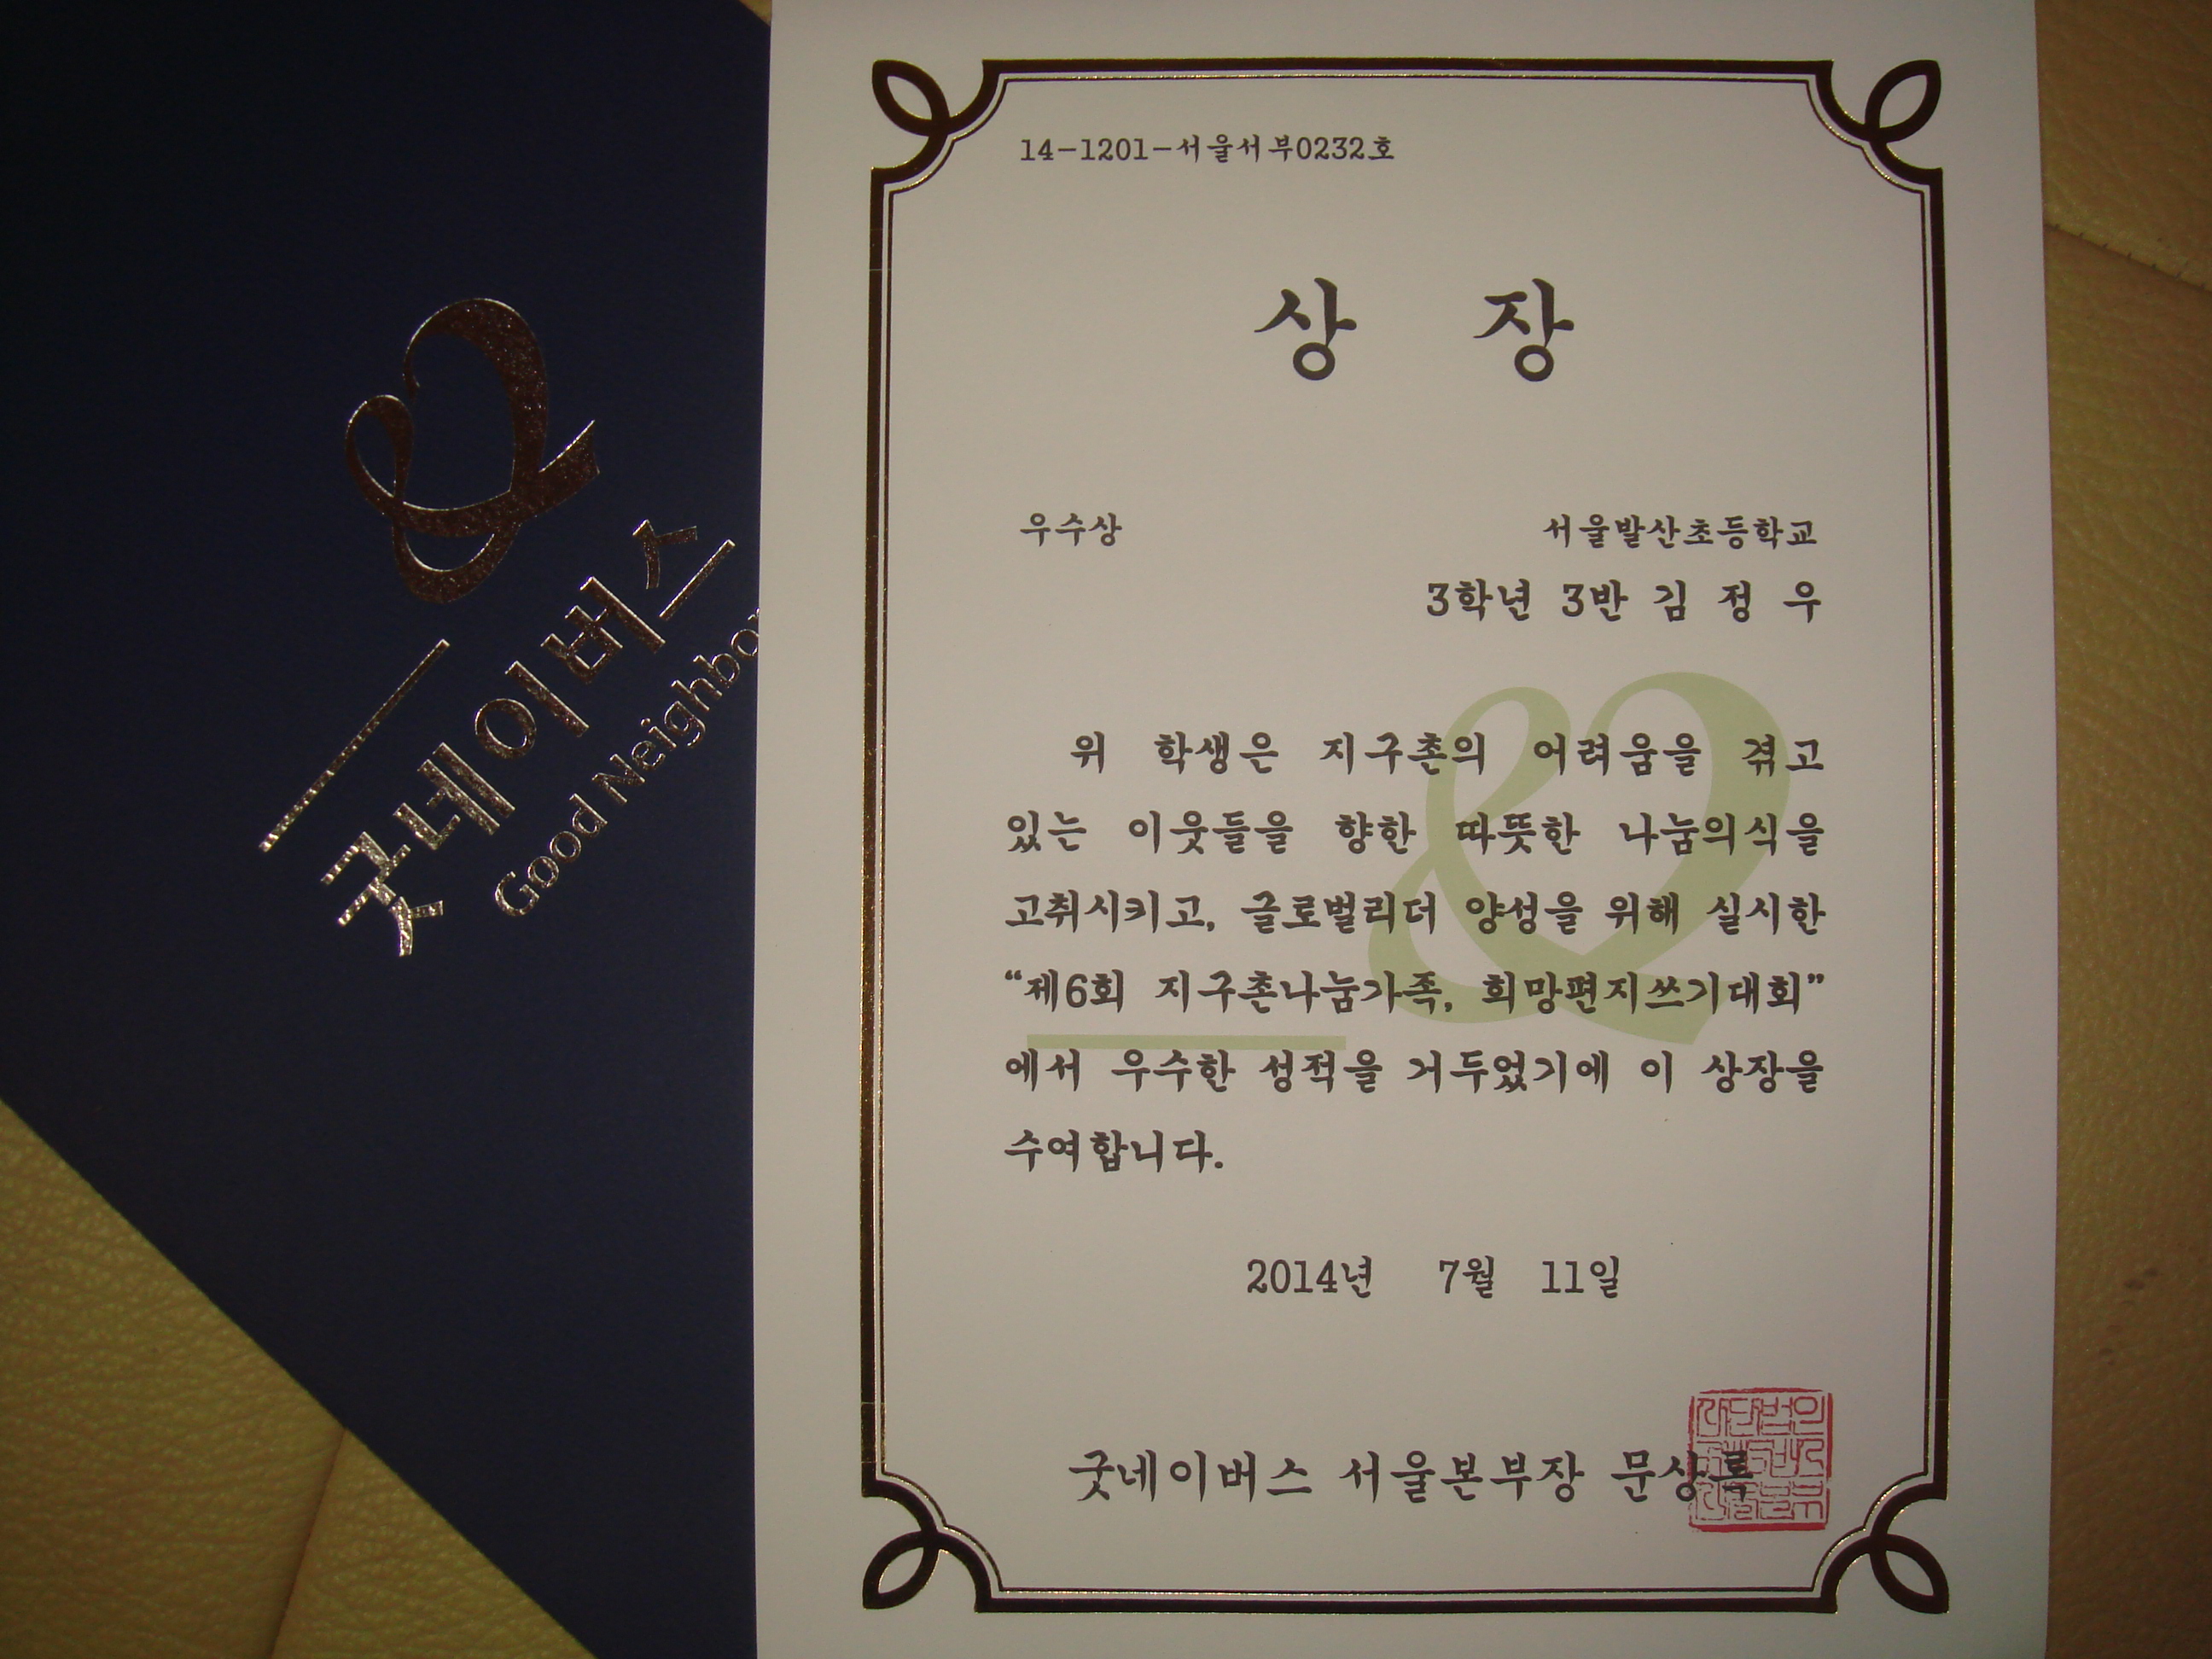 굿네이버스
Good Neighbo
14-1201-서울서부0232호
상 장
우수상 서울발산초등학교
3학년 3반 김 정 우
위 학생은 지구촌의 어려움을 겪고
있는 이웃들을 향한 따뜻한 나눔의식을
고취시키고, 글로벌리더 양성을 위해 실시한
“제6회 지구촌나눔가족, 희망편지쓰기대회”
에서 우수한 성적을 거두었기에 이 상장을
수여합니다.
2014년 7월 11일
굿네이버스 서울본부장 문상록
사단법인